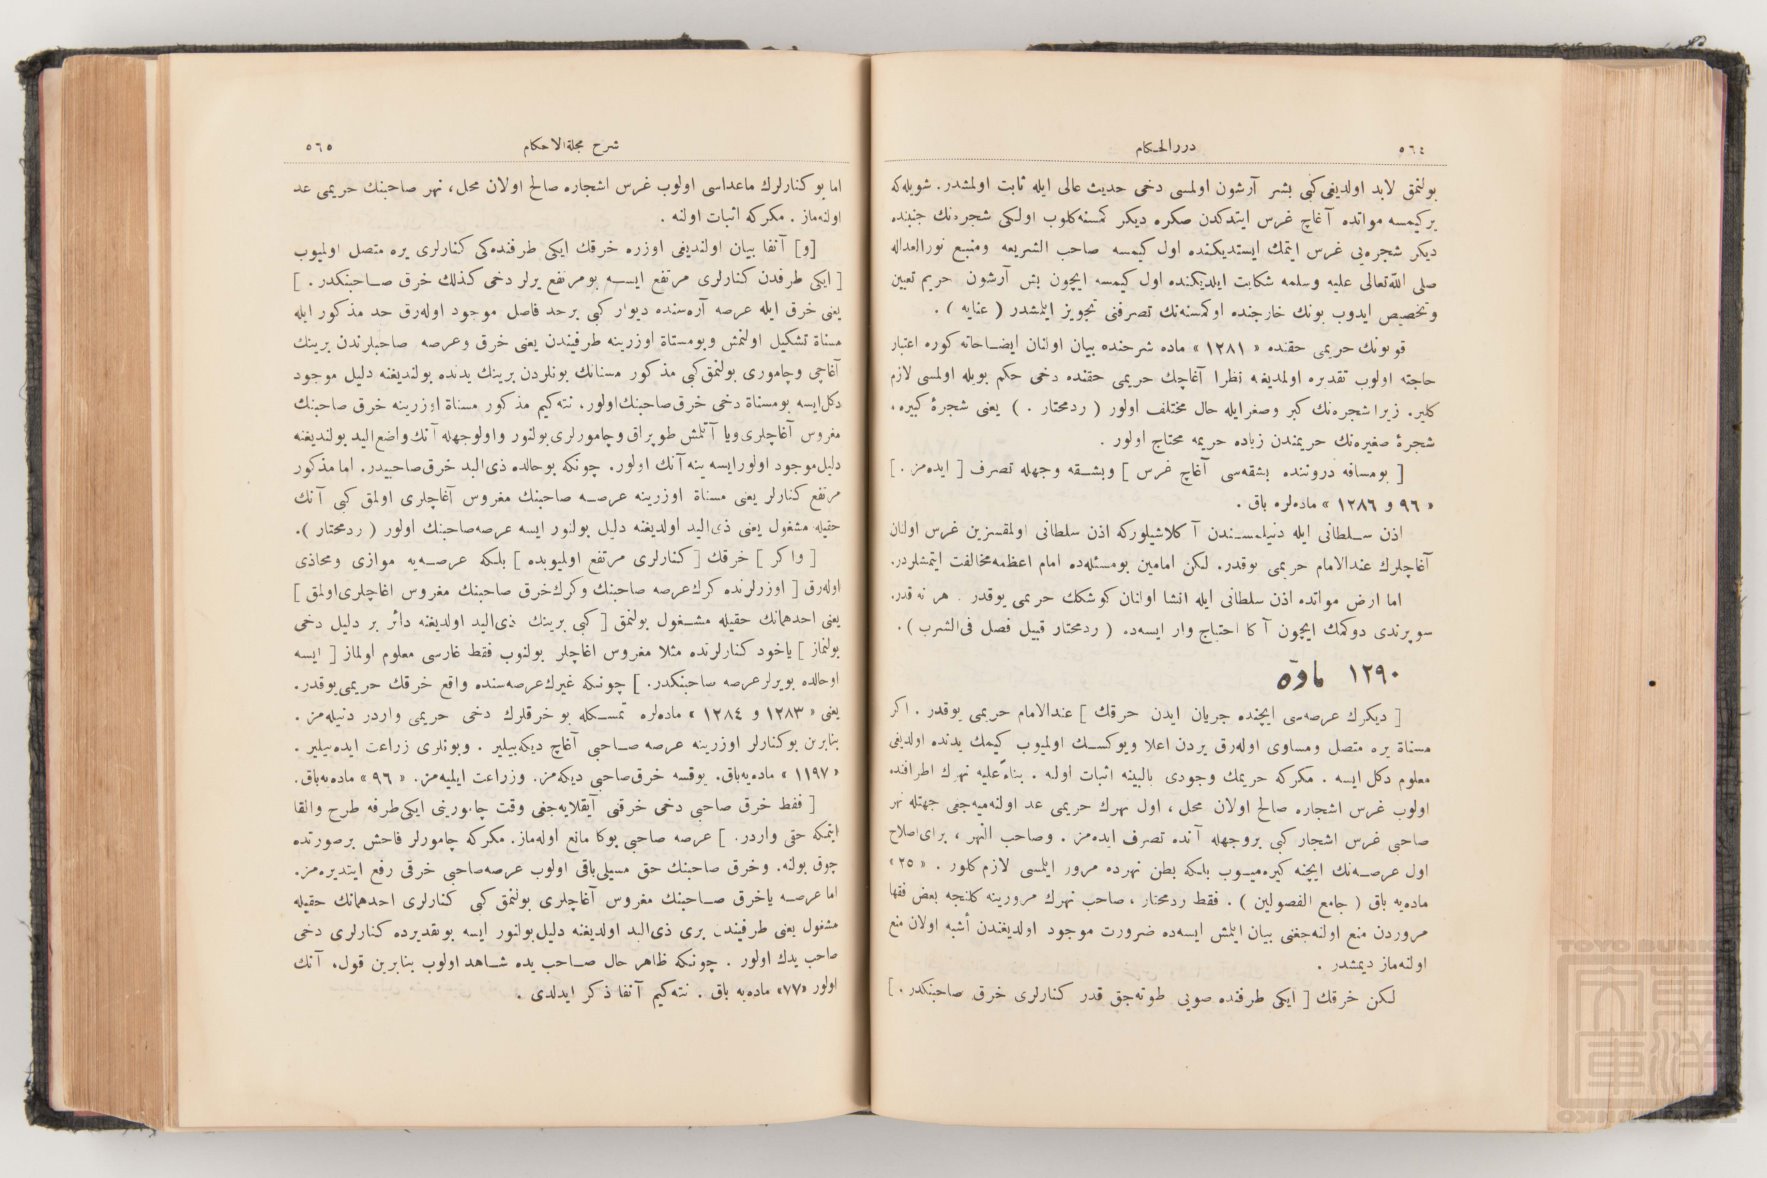 ٥٦٤
درر الحكام
بولنمق لابد اولديغی كبی بشر آرشون اولمسی دخی حديث عالی ايله ثابت اولمشدر. شويله‌كه
بركيمسه مواتده آغاچ غرس ايتدكدن صكره ديكر كمسنه كلوب اولكی شجره‌نك جنبنده
ديكر شجره‌یی غرس ايتمك ايستديكنده اول كيمسه صاحب الشريعه ومنبع نورالعداله
صلی الله تعالی عليه وسلمه شكايت ايلديكنده اول كيمسه ايچون بش آرشون حريم تعيين
وتخصيص ايدوب بونك خارجنده اوكمسنه‌نك تصرفنی تجويز ايلمشدر ( عنايه ) .
قويونك حريمی حقنده « ١٢٨١ » ماده شرحنده بيان اولنان ايضاحاته كوره اعتبار
حاجته اولوب تقديره اولمديغنه نظرا آغاچك حريمی حقنده دخی حكم بويله اولمسی لازم
كلير. زيرا شجره‌نك كبر وصغرايله حال مختلف اولور ( ردمحتار . ) يعنی شجرۀ كبيره،
شجرۀ صغيره‌نك حريمندن زياده حريمه محتاج اولور .
[ بومسافه دروننده بشقه‌سی آغاچ غرس ] وبشقه وجهله تصرف [ ايده‌مز . ]
« ٩٦ و ١٢٨٦ » ماده‌لره باق .
اذن سلطانی ايله دنيلمسندن آكلاشيلوركه اذن سلطانی اولمقسزين غرس اولنان
آغاچلرك عندالامام حريمی يوقدر. لكن امامين بومسئله‌ده امام اعظمه مخالفت ايتمشلردر.
اما ارض مواتده اذن سلطانی ايله انشا اولنان كوشكك حريمی يوقدر . هر نه قدر
سوپرندی دوكمك ايچون آكا احتياج وار ايسه‌ده ( ردمحتار قبيل فصل فی الشرب ) .
١٢٩٠ ماده
[ ديكرك عرصه‌سی ايچنده جريان ايدن خرقك ] عندالامام حريمی يوقدر . اكر
مسناة يره متصل ومساوی اوله‌رق يردن اعلا ويوكسك اولميوب كيمك يدنده اولديغی
معلوم دكل ايسه . مكركه حريمك وجودی بالبينه اثبات اولنه . بناءً عليه نهرك اطرافنده
اولوب غرس اشجاره صالح اولان محل ، اول نهرك حريمی عد اولنه‌ميه‌جغی جهتله نهر
صاحبی غرس اشجار كبی بروجهله آنده تصرف ايده‌مز . وصاحب النهر ، برای اصلاح
اول عرصه‌نك ايچنه كيره‌ميوب بلكه بطن نهرده مرور ايلمسی لازم كلور . « ٢٥ »
ماده‌يه باق ( جامع الفصولين ) . فقط ردمحتار ، صاحب نهرك مرورينه كلنجه بعض فقها
مروردن منع اولنه‌جغنی بيان ايلمش ايسه‌ده ضرورت موجود اولديغندن أشبه اولان منع
اولنه‌ماز ديمشدر .
لكن خرقك [ ايكی طرفنده صويی طوته‌جق قدر كنارلری خرق صاحبنكدر . ]
شرح مجلة الاحكام
٥٦٥
اما بو كنارلرك ماعداسی اولوب غرس اشجاره صالح اولان محل، نهر صاحبنك حريمی عد
اولنه‌ماز . مكركه اثبات اولنه .
[و] آنفا بيان اولنديغی اوزره خرقك ايكی طرفنده‌كی كنارلری يره متصل اولميوب
[ ايكی طرفدن كنارلری مرتفع ايسه بومرتفع يرلر دخی كذلك خرق صاحبنكدر . ]
يعنی خرق ايله عرصه آره‌سنده ديوار كبی برحد فاصل موجود اوله‌رق حد مذكور ايله
مسناة تشكيل اولنمش وبومسناة اوزرينه طرفيندن يعنی خرق وعرصه صاحبلرندن برينك
آغاجی وچاموری بولنمق كبی مذكور مسناتك بونلردن برينك يدنده بولنديغنه دليل موجود
دكل ايسه بومسناة دخی خرق صاحبنك اولور. نته‌كيم مذكور مسناة اوزرينه خرق صاحبنك
مغروس آغاچلری ويا آتلمش طوپراق وچامورلری بولنور واولوجهله آنك واضع اليد بولنديغنه
دليل موجود اولور ايسه ينه آنك اولور. چونكه بوحالده ذی اليد خرق صاحبيدر. اما مذكور
مرتفع كنارلر يعنی مسناة اوزرينه عرصه صاحبنك مغروس آغاچلری اولمق كبی آنك
حقيله مشغول يعنی ذی اليد اولديغنه دليل بولنور ايسه عرصه صاحبنك اولور ( ردمحتار ).
[ واكر ] خرقك [ كنارلری مرتفع اولميوبده ] بلكه عرصه‌يه موازی ومحاذی
اوله‌رق [ اوزرلرنده كرك عرصه صاحبنك وكرك خرق صاحبنك مغروس اغاچلری اولمق ]
يعنی احدهمانك حقيله مشغول بولنمق [ كبی برينك ذی اليد اولديغنه دائر بر دليل دخی
بولنماز ] ياخود كنارلرنده مثلا مغروس اغاچلر بولنوب فقط غارسی معلوم اولماز [ ايسه
اوحالده بويرلر عرصه صاحبنكدر. ] چونكه غيرك عرصه‌سنده واقع خرقك حريمی يوقدر.
يعنی « ١٢٨٣ و ١٢٨٤ » ماده‌لره تمسكله بو خرقلرك دخی حريمی واردر دنيله‌مز .
بنابرين بوكنارلر اوزرينه عرصه صاحبی آغاچ ديكه‌بيلير . وبونلری زراعت ايده‌بيلير .
« ١١٩٧ » ماده‌يه باق. يوقسه خرق صاحبی ديكه‌مز. وزراعت ايليه‌مز. « ٩٦ » ماده‌يه باق.
[ فقط خرق صاحبی دخی خرقی آيقلايه‌جغی وقت چامورينی ايكی طرفه طرح والقا
ايتمكه حقی واردر. ] عرصه صاحبی بوكا مانع اوله‌ماز. مكركه چامورلر فاحش برصورتده
چوق بولنه. وخرق صاحبنك حق مسيلی باقی اولوب عرصه صاحبی خرقی رفع ايتديره‌مز.
اما عرصه ياخرق صاحبنك مغروس آغاچلری بولنمق كبی كنارلری احدهمانك حقيله
مشغول يعنی طرفيندن بری ذی اليد اولديغنه دليل بولنور ايسه بوتقديرده كنارلری دخی
صاحب يدك اولور . چونكه ظاهر حال صاحب يده شاهد اولوب بنابرين قول، آنك
اولور «٧٧» ماده‌يه باق . نته‌كيم آنفا ذكر ايدلدی .
TOYO BUNKO